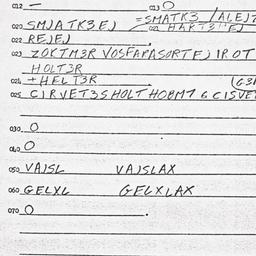 012 — 013 O
020 SMJATK3EJ =SMATK3
021
022 REJEJ
023 ZOKTM3R VOSFAPASORTEJ IROT
HOLT3R
024 + HELT3R
025 CIRVET3S HOLT HOBMT & CISVE
030 O
040 O
050 VAJSL VAJSLAX
060 GELXL GELXLAX
070 O